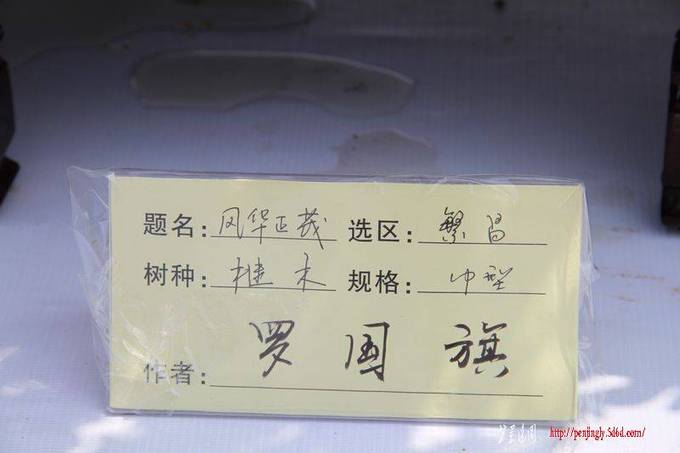 题名：风华正茂 选区：繁昌
树种：檵木 规格：中型
作者：罗国旗
http://penjingly.5d6d.com/